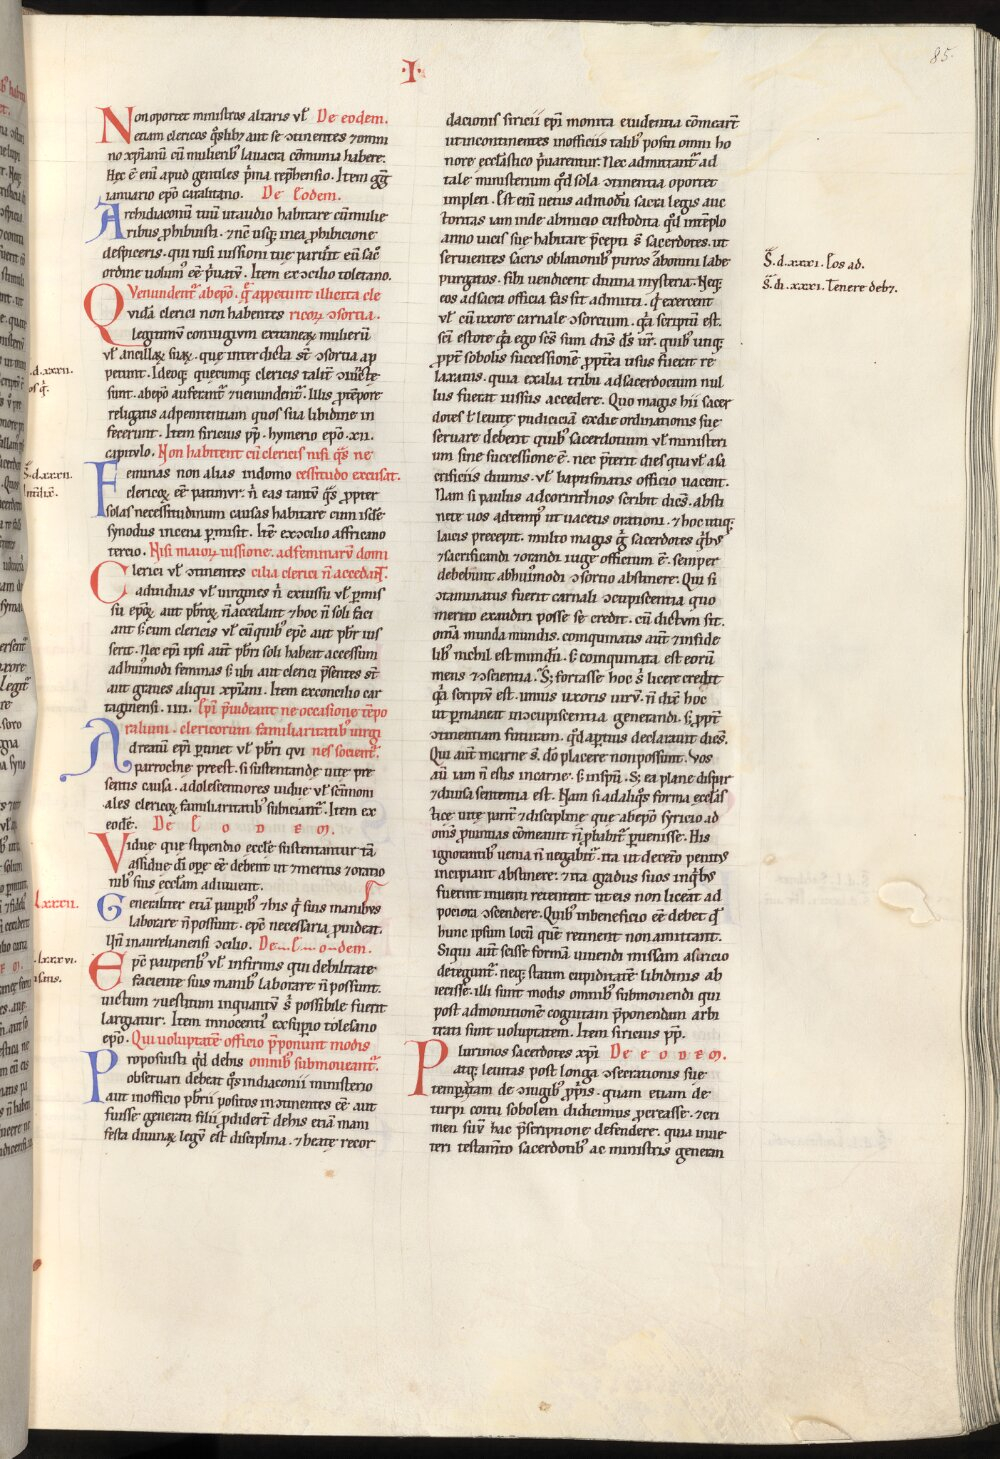 ·I·
85.
Non oportet ministros altaris ul̄ De eodem.
etiam clericos q̄slibꝫ aut se ↄtinentes ⁊ omni
no xp̄ianū cū mulierib; lauacra cōmunia habere.
Hec ē eni apud gentiles p̄ma rep̄hensio. Item gḡ
ianuario ep̄o caralitano. De Eodem.
Archidiaconū tuū ut audio habitare cū mulie
ribus ꝓhibuisti. ⁊ nc̄ usq; in ea ꝓhibicione
despiceris. qui nisi iussioni tue paruīt eū sac̄
ordine uolum̄ eē p̄uatū. Item ex ↄcilio toletano.
Q Venundent̄ ab ep̄o. q̄ appetunt illicita cle
uidā clerici non habentes ricoꝝ ↄsortia.
legitimū coniugium extraneaꝝ mulierū
ul̄ ancillaꝝ suaꝝ. que interdicta st̄ ↄsortia ap
petunt. Ideoq; quecumq; clericis talit̄ ↄiūcte
sunt. ab ep̄o auferant̄ ⁊ uenundent̄. Illis p̄ tēpore
religatis ad penitentiam quos sua libidine in
fecerunt. Item siricius pp̄. hymerio ep̄o. xii.
capitulo. Non habitent cū clericis nisi q̄s ne
Feminas non alias in domo cessitudo excusat.
clericoꝝ eē patimur. n̄ eas tantū q̄s ꝓpter
solas necessitudinum causas habitare cum isdē
synodus nicena p̄misit. Itē ex ↄcilio affricano
tercio. Nisi maioꝝ iussione. ad feminarū domi
Clerici ul̄ ↄtinentes cilia clerici n̄ accedant.
ad uiduas ul̄ uirgines n̄ ex iussu ul̄ p̄mis
su ep̄oꝝ aut pbr̄oꝝ n̄ accedant ⁊ hoc n̄ soli faci
ant s; cum clericis ul̄ cū quib; ep̄c aut pbr̄ ius
serit. Nec ep̄i ipsi aut̄ pbr̄i soli habeat accessum
ad huiꝰmodi feminas s; ubi aut clerici p̄sentes st̄
aut graues aliqui xp̄iani. Item ex concilio car
taginensi. iiii. Ep̄i p̄uideant ne occasione tēpo
A ralium. clericorum familiaritatib; uirgi
d reatū ep̄i p̄tinet ul̄ pbr̄i qui nes socient̄.
parrochie preest. si sustentande uite pre
sentis causa. adolescentiores uidue ul̄ sc̄imoni
ales clericoꝝ familiaritatib; subiciant̄. Item ex
eodē. De Eodem.
Vidue que stipendio eccl̄e sustentantur tā
assidue di oꝑe eē debent ut ⁊ meritis ⁊ oratio
nib; suis eccl̄am adiuuent.
Generaliter etiā paupib; ⁊ his q̄ suis manib;
laborare n̄ possunt. ep̄c necessaria ꝓuideat.
Un̄ in aurelianensi ↄcilio. De Eodem.
Ep̄c pauperib; ul̄ infirmis qui debilitate
faciente suis manib; laborare n̄ possunt.
uictum ⁊ uestitum inquantū s̄ possibile fuerit
largiatur. Item innocentiꝰ exsuꝑio tolesano
ep̄o. Qui uoluptatē officio p̄ponunt modis
Proposuisti qd̄ de his omnib; submoueant̄.
obseruari debeat q̄s in diaconii ministerio
aut in officio pbr̄ii positos incↄtinentes eē aut
fuisse generati filii ꝓdidert̄ de his etiā mani
festa diuinaꝝ legū est disciplina. ⁊ beate recor
dacionis siricii ep̄i monita euidentia cōmearūt
ut incontinentes in officiis talib; positi omni ho
nore eccl̄iastico p̄uarentur. Nec admittant̄ ad
tale ministerium qd̄ sola ↄtinentia oportet
impleri. Est eni uetus admodū sacra legis auc
toritas iam inde ab inicio custodita qd̄ in tēplo
anno uicis sue habitare p̄cepti s̄ sacerdotes. ut
seruientes sacris oblationib; puros ab omni labe
purgatos. sibi uendicent diuina mysteria. Neq;
eos ad sacra officia fas sit admitti. q̄ exercent
ul̄ cū uxore carnale ↄsorcium. q̄a scriptū est.
sc̄i estote q̄a ego sc̄s sum dn̄s ds̄ ur̄. quib; utiq;
ꝓpt̄ sobolis successionē ꝓpt̄ea usus fuerat re
laxatus. quia ex alia tribu ad sacerdocium nul
lus fuerat iussus accedere. Quo magis hii sacer
dotes ul̄ leuite pudiciciā ex die ordinationis sue
seruare debent quib; sacerdotium ul̄ ministeri
um sine successione ē. nec p̄terit dies qua ul̄ a sa
crificiis diuinis. ul̄ baptismatis officio uacent.
Nam si paulus ad corinthios scribit dicēs. absti
nete uos ad tempꝰ ut uacetis orationi. ⁊ hoc utiq;
laicis precepit. multo magis g̊ sacerdotes q̄b;
⁊ sacrificandi ⁊ orandi iuge officium ē. semper
debebunt ab huiꝰmodi ↄsortio abstinere. Qui si
ↄtaminatus fuerit carnali ↄcupiscentia quo
merito exaudiri posse se credit. cū dictum sit.
omia munda mundis. coinquinatis aut̄ ⁊ infide
lib; nichil est mundū. s; coinquinata est eorū
mens ⁊ ↄscientia. S; fortasse hoc s; licere credit
q̄a scriptū est. unius uxoris uirū. n̄ dix̄ hoc
ut p̄maneat in ↄcupiscentia generandi. s; ꝓpt̄
ↄtinentiam futuram. qd̄ apertius declarauit dicēs.
Qui aut̄ in carne s̄. dō placere non possunt. Vos
aū iam n̄ estis in carne. s; in sp̄u. S; ea plane dispar
⁊ diuisa sententia est. Nam si ad aliq̄s forma eccl̄as
tice uite parit̄ ⁊ discipline que ab ep̄o syricio ad
om̄s ꝓuincias cōmeauit n̄ ꝓbabit̄ ꝑuenisse. His
ignorantib; uenia n̄ negabit̄. ita ut de cet̄o penitꝰ
incipiant abstinere. ⁊ ita gradus suos in q̄b;
fuerint inuenti retentent ut eis non liceat ad
pociora ↄscendere. Quib; in beneficio eē debet qd̄
hunc ipsum locū quē retinent non amittant.
Si qui aut̄ scisse formā uiuendi missam a siricio
detegunt̄. neq; statim cupiditatē libidinis ab
iecisse. illi sunt modis omnib; submouendi qui
post admonitionē cognitam p̄ponendum arbi
trati sunt uoluptatem. Item siricius pp̄.
Plurimos sacerdotes xp̄i De eodem.
atq; leuitas post longa ↄsecrationis sue
tempa tam de ↄiugib; p̄p̄is. quam etiam de
turpi coitu sobolem didicimus ꝓcreasse. ⁊ cri
men suū hac p̄scriptione defendere. quia in ue
teri testam̄to sacerdotib; ac ministris generan
S. d. xxxi. Eos ad.
S. di. xxxi. Tenere deb7.
.d. xxxii.
S. d. xxxii.
lxxxii.
.lxxxvi.